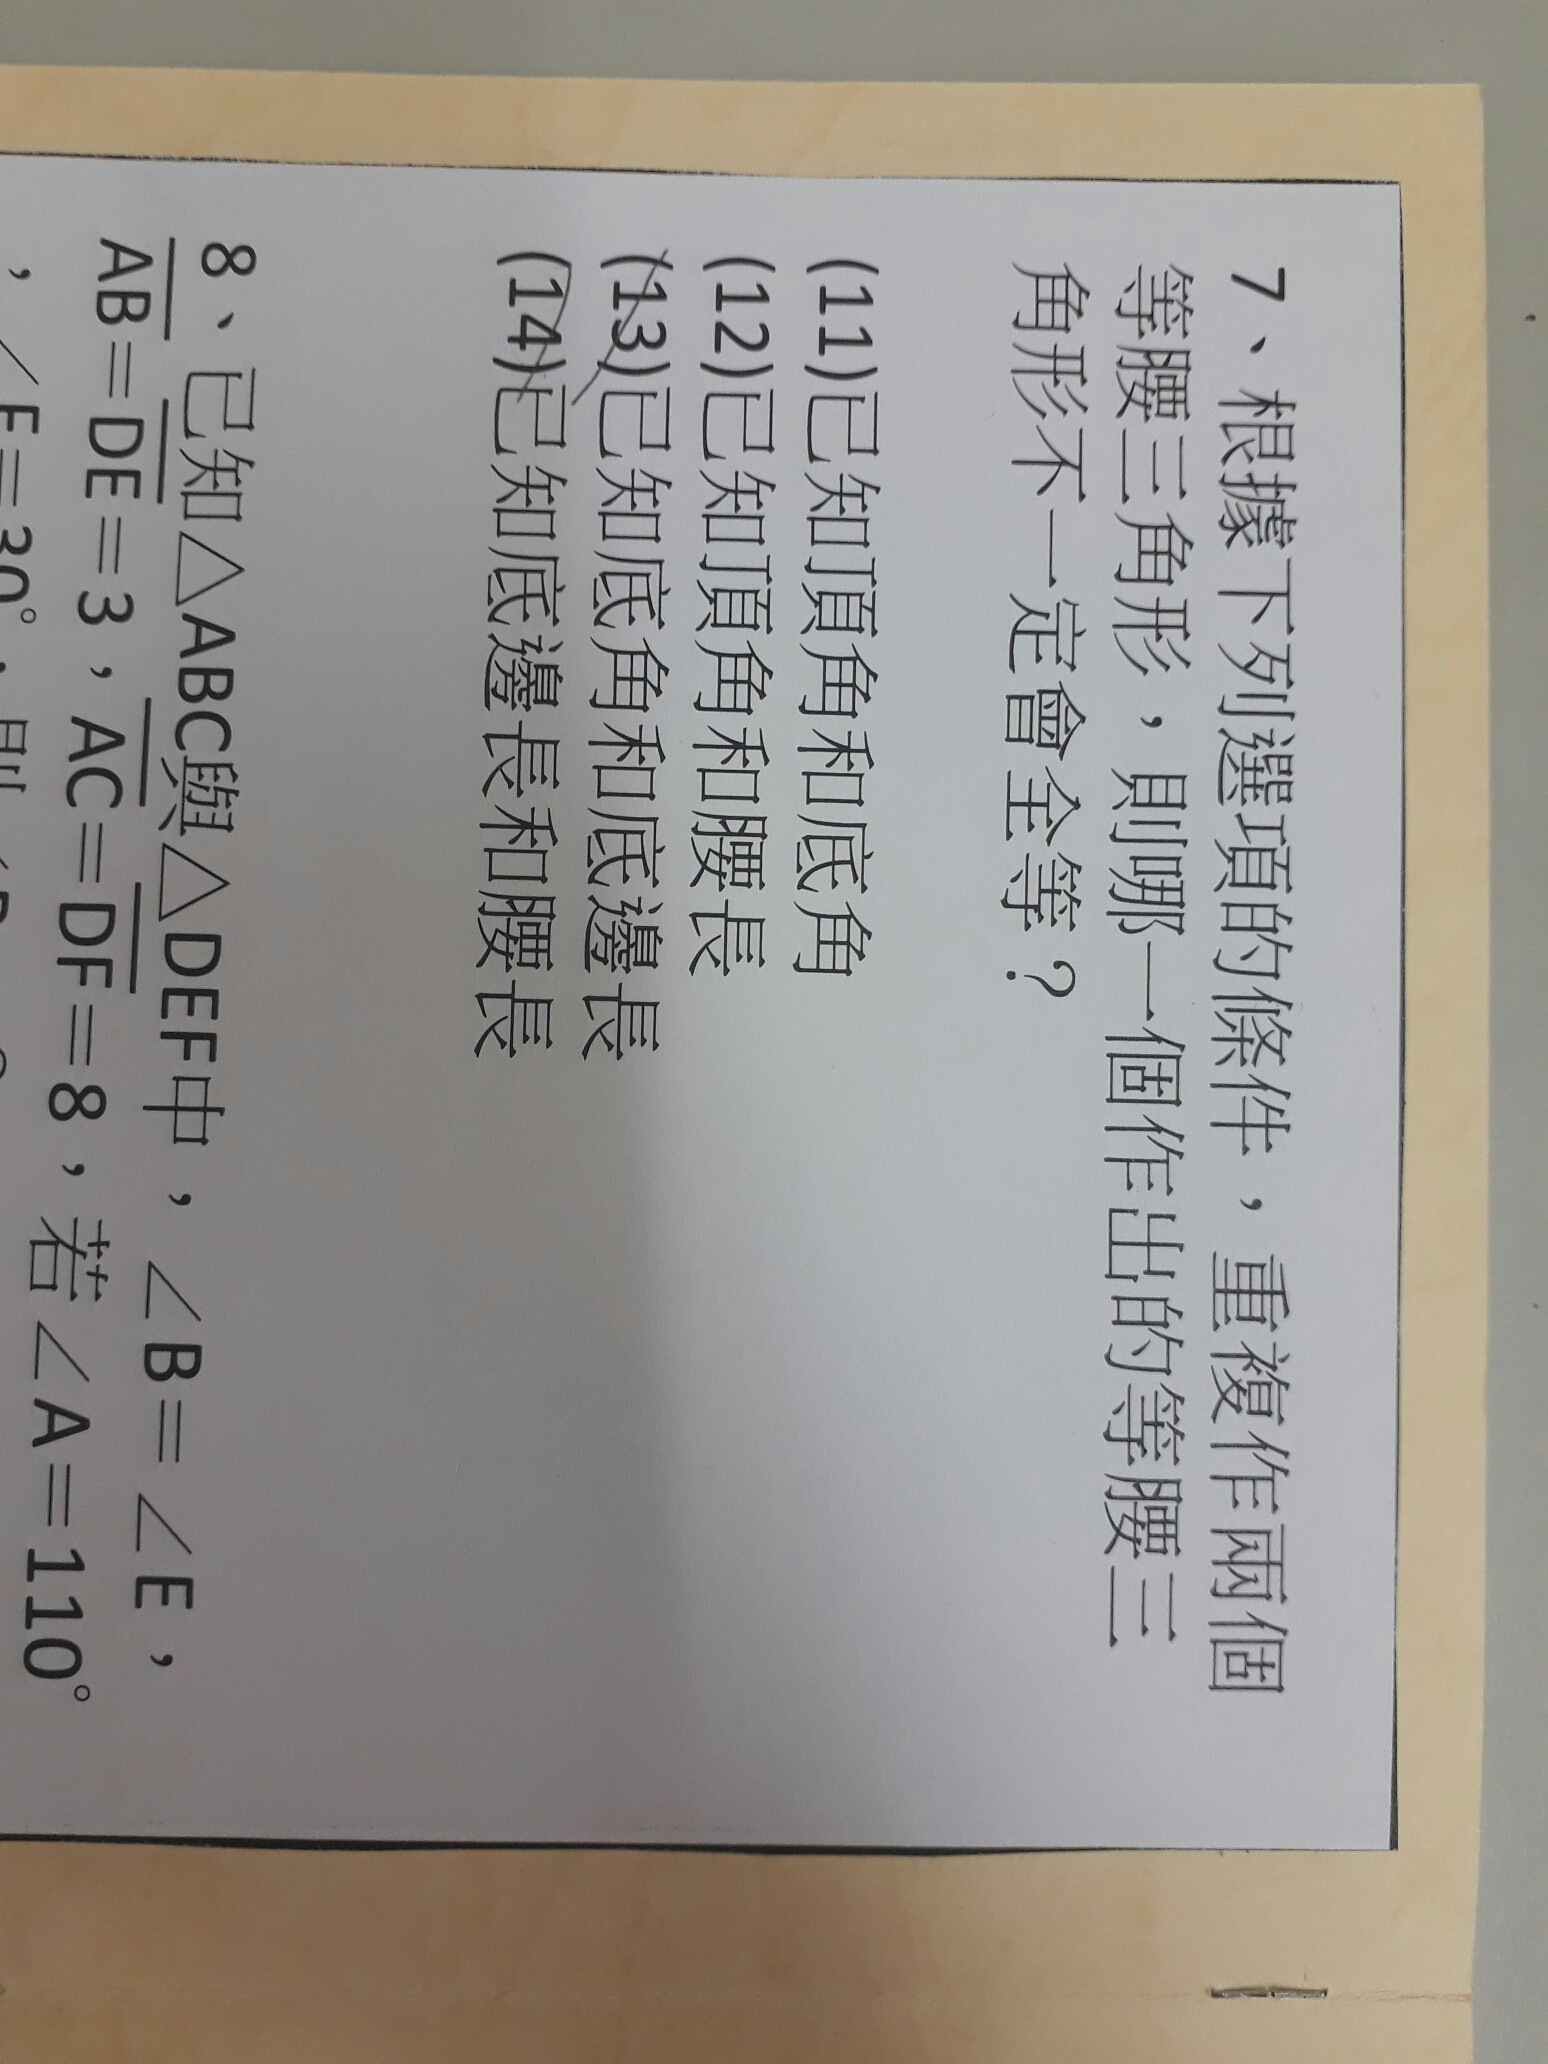 7、根據下列選項的條件，重複作兩個
等腰三角形，則哪一個作出的等腰三
角形不一定會全等？
(11)已知頂角和底角
(12)已知頂角和腰長
(13)已知底角和底邊長
(14)已知底邊長和腰長
8、已知△ABC與△DEF中，∠B＝∠E，
AB＝DE＝3，AC＝DF＝8，若∠A＝110°